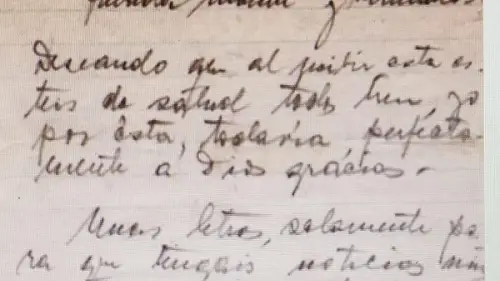 Deseando que al recibir esta es-
teis de salud todos bien, yo
por ésta, todavía, perfecta-
mente a Dios gracias.
Unas letras, solamente pa
ra que tengais noticias